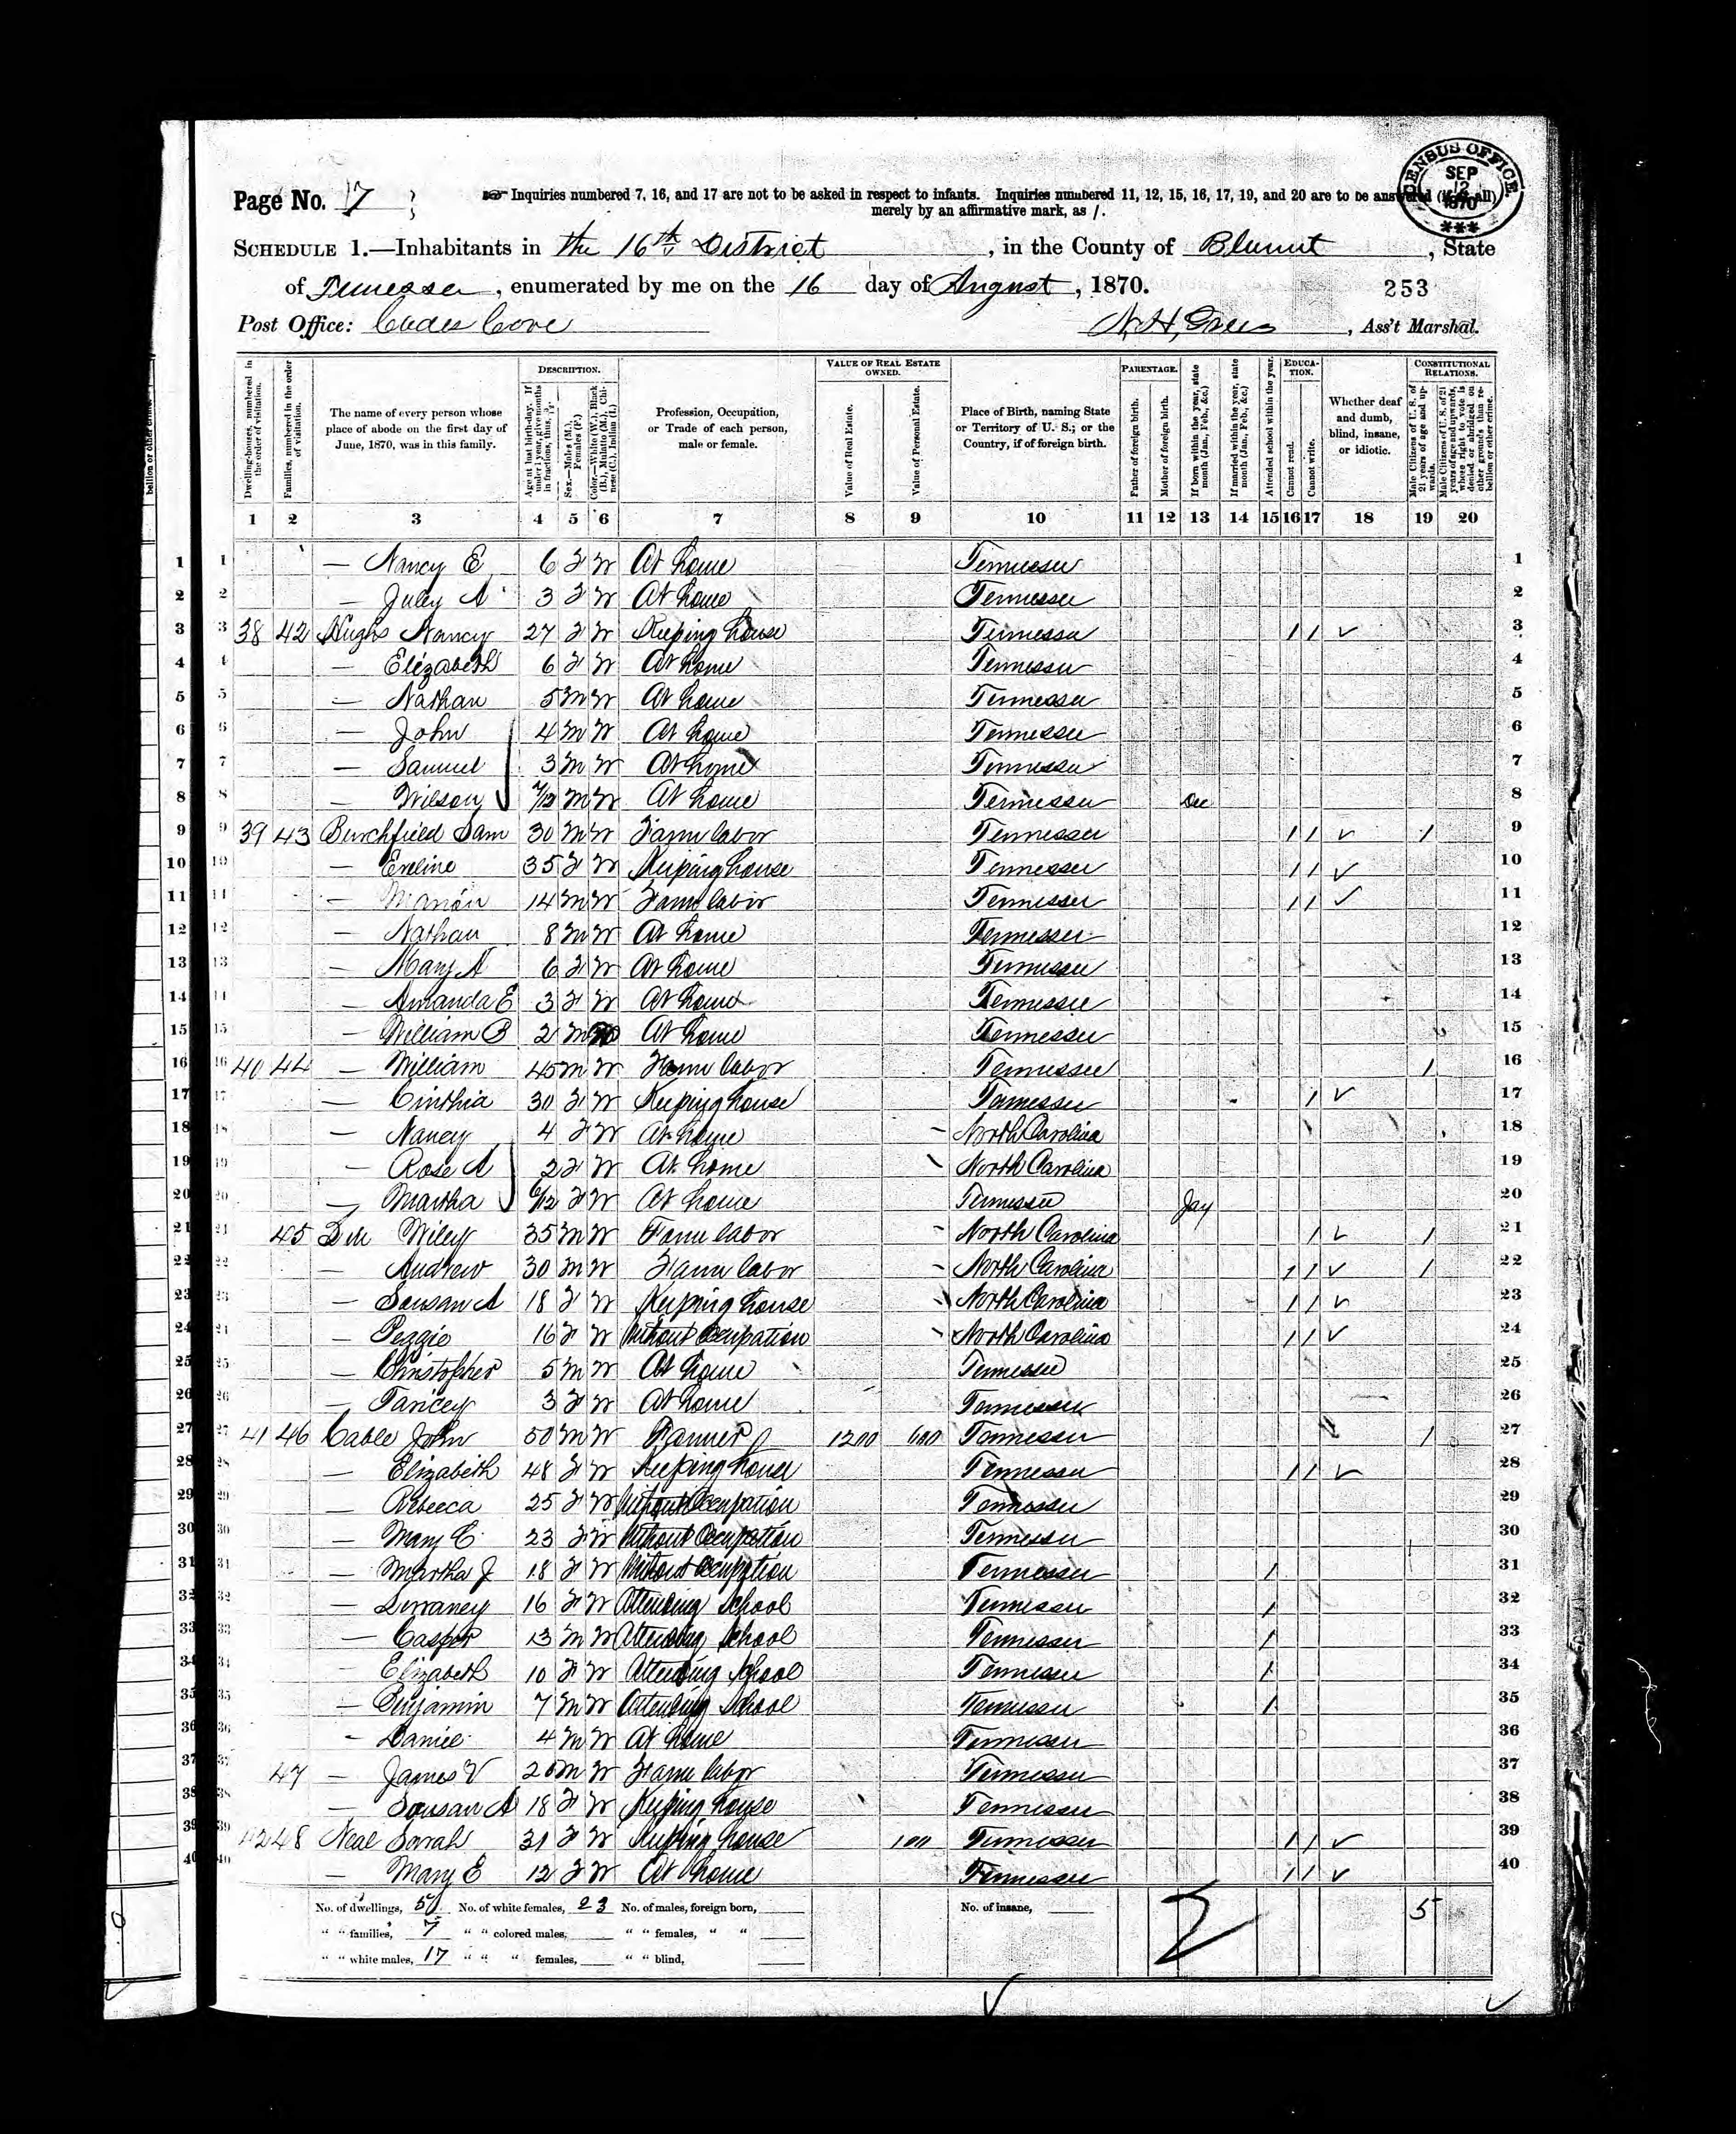 Page No. 17
Inquiries numbered 7, 16, and 17 are not to be asked in respect to infants. Inquiries numbered 11, 12, 15, 16, 17, 19, and 20 are to be answered (if at all)
merely by an affirmative mark, as /.
CENSUS OFFICE SEP 12 1870
SCHEDULE 1.—Inhabitants in the 16th District, in the County of Blount, State
of Tennessee, enumerated by me on the 16 day of August, 1870.
253
Post Office: Cades Cove
Ass't Marshal.
Dwelling-houses, numbered in the order of visitation.
Families, numbered in the order of visitation.
The name of every person whose place of abode on the first day of June, 1870, was in this family.
DESCRIPTION.
Age at last birth-day. If under 1 year, give months in fractions, thus, 3/12.
Sex.—Males (M.), Females (F.)
Color.—White (W.), Black (B.), Mulatto (M.), Chinese (C.), Indian (I.)
Profession, Occupation, or Trade of each person, male or female.
VALUE OF REAL ESTATE OWNED.
Value of Real Estate.
Value of Personal Estate.
Place of Birth, naming State or Territory of U. S.; or the Country, if of foreign birth.
PARENTAGE.
Father of foreign birth.
Mother of foreign birth.
If born within the year, state month (Jan., Feb., &c.)
If married within the year, state month (Jan., Feb., &c.)
Attended school within the year.
EDUCATION.
Cannot read.
Cannot write.
Whether deaf and dumb, blind, insane, or idiotic.
CONSTITUTIONAL RELATIONS.
Male Citizens of U. S. of 21 years of age and upwards.
Male Citizens of U. S. of 21 years of age and upwards, whose right to vote is denied or abridged on other grounds than rebellion or other crime.
1 2 3 4 5 6 7 8 9 10 11 12 13 14 15 16 17 18 19 20
1 — Nancy E 6 F W At home Tennessee
2 — Juley A 3 F W At home Tennessee
3 38 42 Hughs Nancy 27 F W Keeping house Tennessee / / ✓
4 — Elizabeth 6 F W At home Tennessee
5 — Nathan 5 M W At home Tennessee
6 — John 4 M W At home Tennessee
7 — Samuel 3 M W At home Tennessee
8 — Wilson 7/12 M W At home Tennessee Dec
9 39 43 Burchfield Sam 30 M W Farm labor Tennessee / / ✓ /
10 — Eveline 35 F W Keeping house Tennessee / / ✓
11 — Marion 14 M W Farm labor Tennessee / / ✓
12 — Nathan 8 M W At home Tennessee
13 — Mary A 6 F W At home Tennessee
14 — Amanda E 3 F W At home Tennessee
15 — William B 2 M W At home Tennessee
16 40 44 — William 45 M W Farm labor Tennessee /
17 — Cinthia 30 F W Keeping house Tennessee / ✓
18 — Nancy 4 F W At home North Carolina
19 — Rose A 2 F W At home North Carolina
20 — Martha 6/12 F W At home Tennessee Jay
21 45 Wiley 35 M W Farm labor North Carolina / ✓ /
22 — Andrew 30 M W Farm labor North Carolina / / ✓ /
23 — Sousan A 18 F W Keeping house North Carolina / / ✓
24 — Peggie 16 F W Without Occupation North Carolina / / ✓
25 — Christopher 5 M W At home Tennessee
26 — 3 F W At home Tennessee
27 41 46 Cable John 50 M W Farmer 1200 600 Tennessee /
28 — Elizabeth 48 F W Keeping house Tennessee / / ✓
29 — Rebecca 25 F W Without Occupation Tennessee
30 — Mary E 23 F W Without Occupation Tennessee
31 — Martha J 18 F W Without Occupation Tennessee /
32 — 16 F W Attending School Tennessee /
33 — Casper 13 M W Attending School Tennessee /
34 — Elizabeth 10 F W Attending School Tennessee /
35 — Benjamin 7 M W Attending School Tennessee /
36 — 4 M W At home Tennessee
37 47 — James V M W Farm labor Tennessee
38 — Sousan A 18 F W Keeping house Tennessee
39 42 48 Neal Sarah 31 F W Keeping house 100 Tennessee / / ✓
40 — Mary E 12 F W At home Tennessee / / ✓
No. of dwellings, 5 No. of white females, 23 No. of males, foreign born, No. of insane, 5
" " families, 7 " " colored males, " " females, " "
" " white males, 17 " " " females, " " blind,